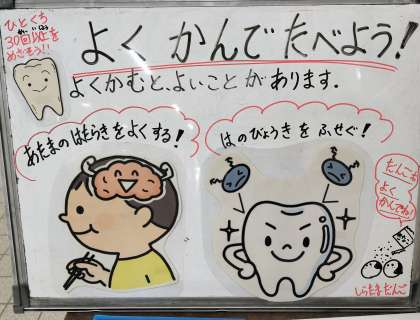 ひとくち
30回以上を
めざそう!!
よく かんで たべよう!
よくかむと、よいことが あります.
あたまの はたらきを よくする!
はの びょうき を ふせぐ!
だんごも
よく
かんでね!
しらたまだんご